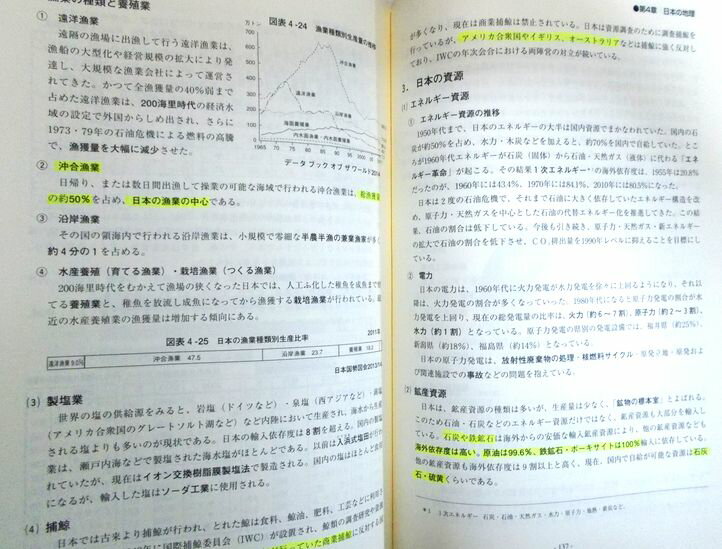 漁業の種類と養殖業
① 遠洋漁業
遠隔の漁場に出漁して行う遠洋漁業は、
漁船の大型化や経営規模の拡大により発
達し、大規模な漁業会社によって運営さ
れてきた。かつて全漁獲量の40％弱まで
占めた遠洋漁業は、200海里時代の経済水
域の設定で外国からしめ出され、さらに
1973・79年の石油危機による燃料の高騰
で、漁獲量を大幅に減少させた。
図表4-24 漁業種類別生産量の推移
万トン
700
600
500
400
300
200
100
0
沖合漁業
遠洋漁業
沿岸漁業
海面養殖業
内水面漁業・内水面養殖業
1965 70 75 80 85 90 95
データ ブック オブ ザ ワールド
② 沖合漁業
日帰り、または数日間出漁して操業の可能な海域で行われる沖合漁業は、総漁獲量
の約50％を占め、日本の漁業の中心である。
③ 沿岸漁業
その国の領海内で行われる沿岸漁業は、小規模で零細な半農半漁の兼業漁家が多く
約４分の１を占める。
④ 水産養殖（育てる漁業）・栽培漁業（つくる漁業）
200海里時代をむかえて漁場の狭くなった日本では、人工ふ化した稚魚を成魚まで
てる養殖業と、稚魚を放流し成魚になってから漁獲する栽培漁業が行われている。
近の水産養殖業の漁獲量は増加する傾向にある。
図表4-25 日本の漁業種類別生産比率
2011年
遠洋漁業 9.0% 沖合漁業 47.5 沿岸漁業 23.7 養殖業 18.2
日本国勢図会2013/14
(3) 製塩業
世界の塩の供給源をみると、岩塩（ドイツなど）・泉塩（西アジアなど）・
（アメリカ合衆国のグレートソルト湖など）など内陸において生産され、海水から生産
される塩よりも多いのが現状である。日本の輸入依存度は８割を超える。国内の製
業は、瀬戸内海などで製塩された海水塩がほとんどである。以前は入浜式塩田が行
れていたが、現在はイオン交換樹脂膜製塩法で製造される。国内の塩はほとんど食用
になるが、輸入した塩はソーダ工業に使用される。
(4) 捕鯨
日本では古来より捕鯨が行われ、とれた鯨は食料、鯨油、肥料、工芸などに利用さ
年に国際捕鯨委員会（IWC）が設置され、鯨類の調査研究や
行っていた商業捕鯨に反対する国
●第4章 日本の地理
が多くなり、現在は商業捕鯨は禁止されている。日本は資源調査のために調査捕鯨を
行っているが、アメリカ合衆国やイギリス、オーストラリアなどは捕鯨に強く反対し
ており、IWCの年次会合における両陣営の対立が続いている。
3. 日本の資源
(1) エネルギー資源
① エネルギー資源の推移
1950年代まで、日本のエネルギーの大半は国内資源でまかなわれていた。国内の石
炭が約50％を占め、水力・木炭などを加えると、約70％を国内で自給していた。とこ
ろが1960年代エネルギーが石炭（固体）から石油・天然ガス（液体）に代わる「エネ
ルギー革命」が起こる。その結果１次エネルギー*¹の海外依存度は、1955年は20.8％
だったのが、1960年には43.4％、1970年には84.1％、2010年には80.5％になった。
日本は２度の石油危機で、それまで石油に大きく依存していたエネルギー構造を改
め、原子力・天然ガスを中心とした石油の代替エネルギー化を推進してきた。この結
果、石油の割合は低下している。今後も引き続き、原子力・天然ガス・新エネルギー
の拡大で石油の割合を低下させ、CO₂排出量を1990年レベルに抑えることを目標にし
ている。
② 電力
日本の電力は、1960年代に火力発電が水力発電を徐々に上回るようになり、それ以
降は、火力発電の割合が多くなっていった。1980年代になると原子力発電の割合が水
力発電を上回り、現在の総発電量の比率は、火力（約６～７割）、原子力（約２～３割）、
水力（約１割）となっている。原子力発電の県別の発電設備では、福井県（約25％）、
新潟県（約18％）、福島県（約14％）となっている。
日本の原子力発電は、放射性廃棄物の処理・核燃料サイクル・原発立地・原発およ
び関連施設での事故などの問題を抱えている。
(2) 鉱産資源
日本は、鉱産資源の種類は多いが、生産量は少なく、「鉱物の標本室」とよばれる。
このため石油・石炭などのエネルギー資源だけではなく、鉱産資源も大部分を輸入し
ている。石炭や鉄鉱石は海外からの安価な輸入鉱産資源により、他の鉱産資源なども
海外依存度は高い。原油は99.6％、鉄鉱石・ボーキサイトは100％輸入に依存している。
他の鉱産資源も海外依存度は９割以上と高く、現在、国内で自給が可能な資源は石灰
石・硫黄くらいである。
*1 １次エネルギー 石炭・石油・天然ガス・水力・原子力・地熱・薪炭など。
-137-